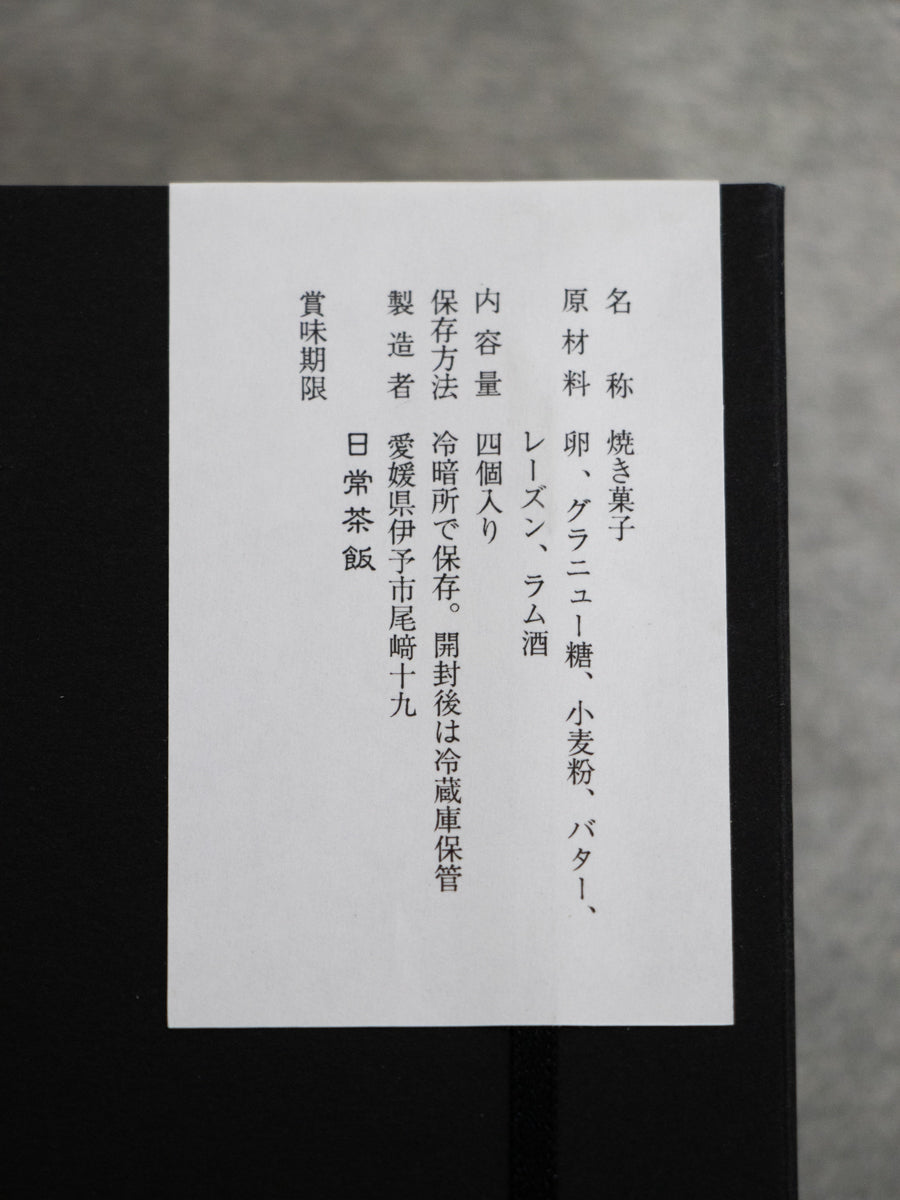 名称 焼き菓子
原材料 卵、グラニュー糖、小麦粉、バター、
レーズン、ラム酒
内容量 四個入り
保存方法 冷暗所で保存。開封後は冷蔵庫保管
製造者 愛媛県伊予市尾﨑十九
日常茶飯
賞味期限